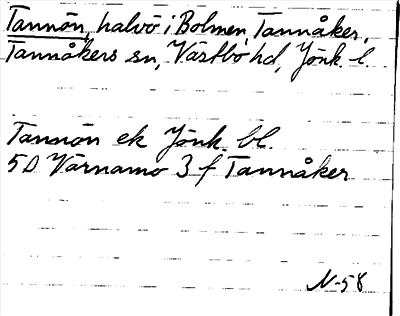 Tannön, halvö i Bolmen, Tannåker,
Tannåkers sn, Västbo hd, Jönk. l.
Tannön ek Jönk. bl.
5D Värnamo 3 f Tannåker
N-58